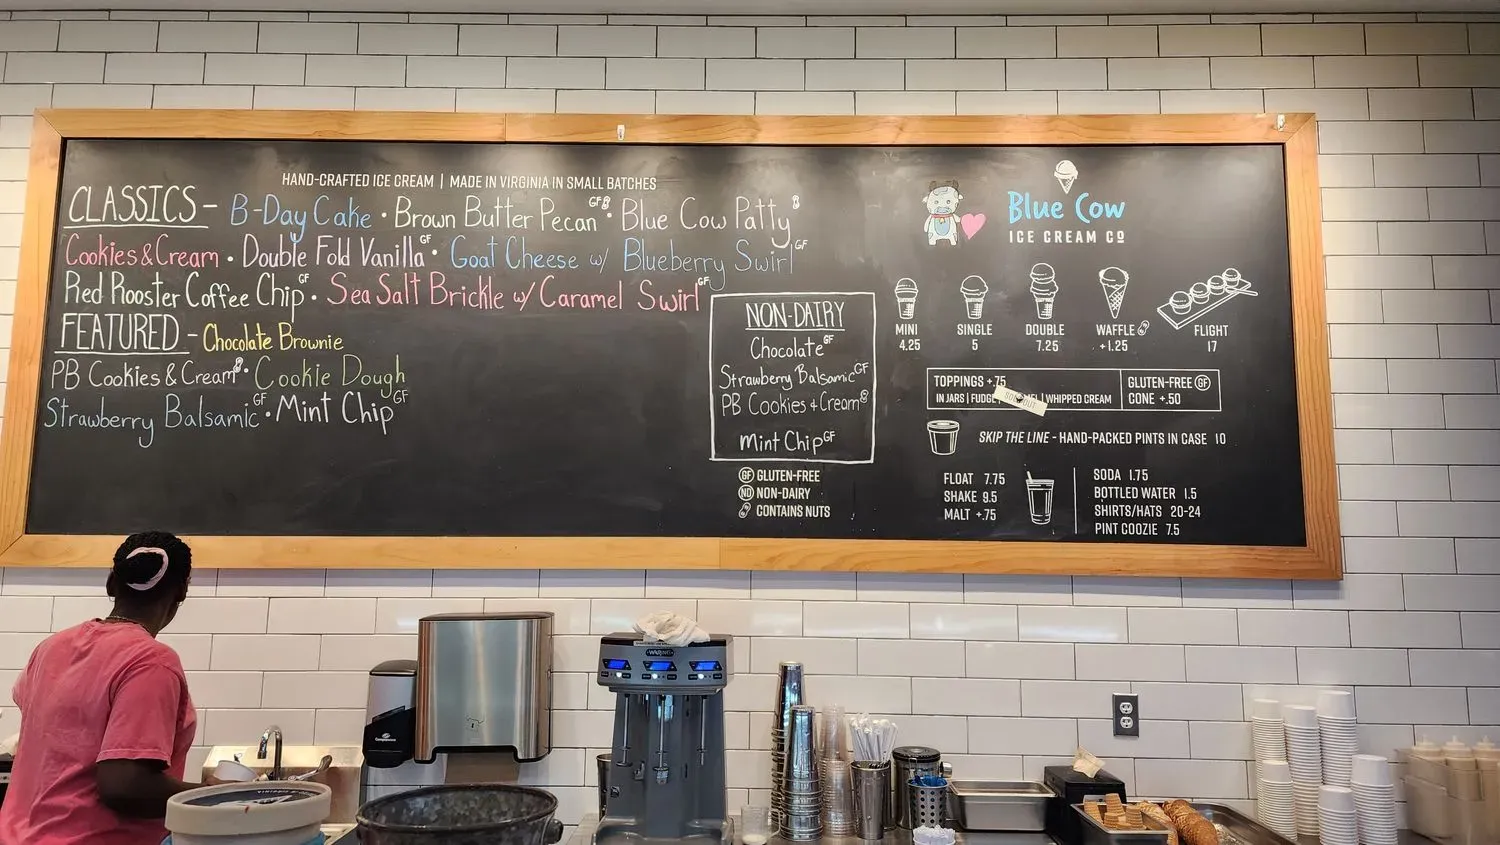 HAND-CRAFTED ICE CREAM | MADE IN VIRGINIA IN SMALL BATCHES
CLASSICS - B-Day Cake · Brown Butter Pecan GF · Blue Cow Patty
Cookies & Cream · Double Fold Vanilla GF · Goat Cheese w/ Blueberry Swirl GF
Red Rooster Coffee Chip GF · Sea Salt Brickle w/ Caramel Swirl GF
FEATURED - Chocolate Brownie
PB Cookies & Cream · Cookie Dough
Strawberry Balsamic GF · Mint Chip GF
NON-DAIRY
Chocolate GF
Strawberry Balsamic GF
PB Cookies + Cream
Mint Chip GF
GF GLUTEN-FREE
ND NON-DAIRY
CONTAINS NUTS
Blue Cow
ICE CREAM CO
MINI
4.25
SINGLE
5
DOUBLE
7.25
WAFFLE
+1.25
FLIGHT
17
TOPPINGS +.75
IN JARS | FUDGE | SOLD OUT | WHIPPED CREAM
GLUTEN-FREE GF
CONE +.50
SKIP THE LINE - HAND-PACKED PINTS IN CASE 10
FLOAT 7.75
SHAKE 9.5
MALT +.75
SODA 1.75
BOTTLED WATER 1.5
SHIRTS/HATS 20-24
PINT COOZIE 7.5
WARING